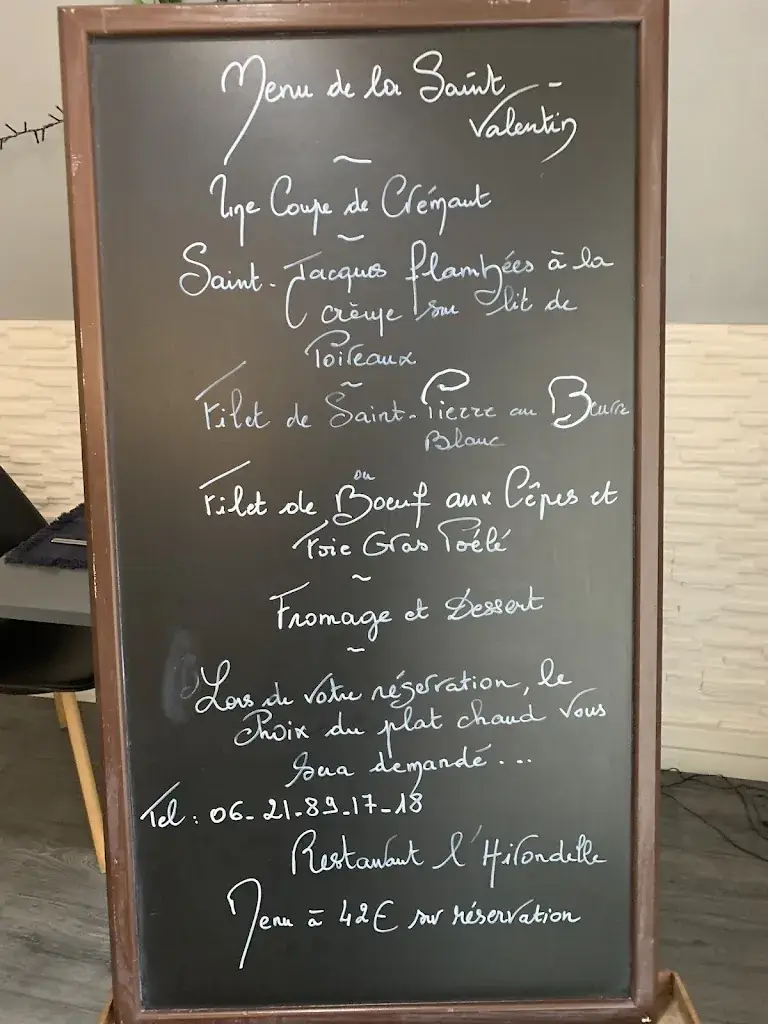 Menu de la Saint-
Valentin
~
Une Coupe de Crémant
~
Saint-Jacques flambées à la
crème sur lit de
Poireaux
~
Filet de Saint-Pierre au Beurre
Blanc
ou
Filet de Boeuf aux Cêpes et
Foie Gras Poêlé
~
Fromage et Dessert
~
Lors de votre réservation, le
Choix du plat chaud vous
sera demandé...
Tel : 06-21-89-17-18
Restaurant l'Hirondelle
Menu à 42€ sur réservation